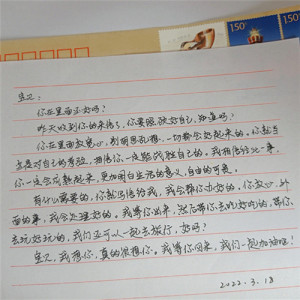 150
150
宝贝:
你在里面还好吗?
昨天收到你的来信了,你要照顾好自己,知道吗?
你在里面放宽心,别胡思乱想,一切都会好起来的。你就当
是对自己的考验,相信你一定能战胜自己的。我相信经此一事,
你一定会成熟起来,更加明白生活的意义,自由的可贵。
有什么需要的,你就写信给我,我会帮你办好的。你放心,外
面的事,我会处理好的。我等你出来,然后带你去吃好吃的,带你
去玩好玩的,我们还可以一起去旅行,好吗?
宝贝,我想你,真的很想你。我等你回来,我们一起加油哦!
2022.3.18